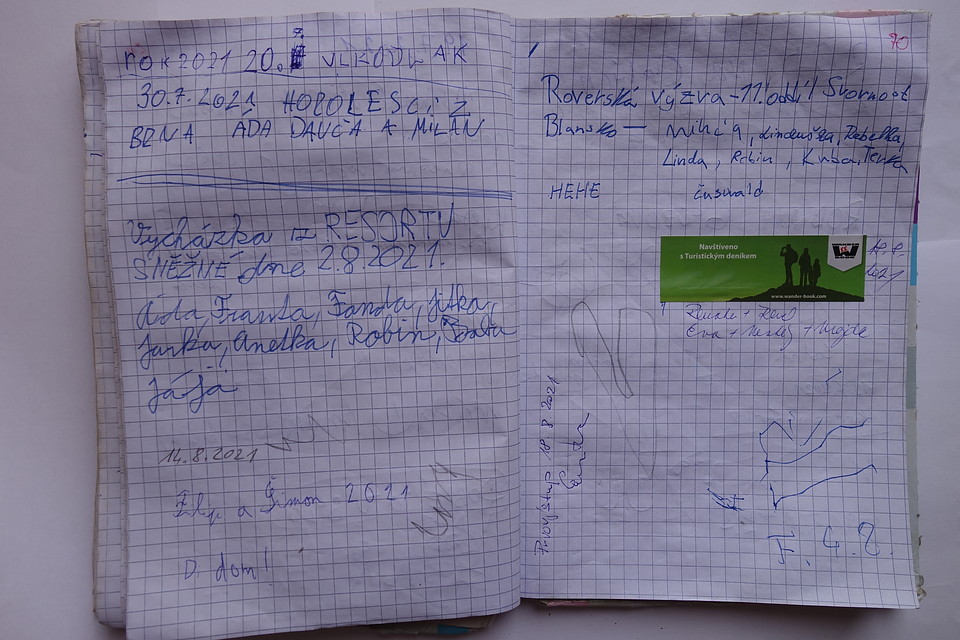 rok 2021 20.7. VLKODLAK
30.7.2021 HOROLESCI Z
BRNA ÁDA DAVČA A MILAN
Vycházka iz RESORTU
SNĚŽNÉ dne 2.8.2021.
Áida, Franta, Fanda, Jitka,
Jarka, Anetka, Robin, Bára
Jája
14.8.2021
a Šimon 2021
D. dom!
70
Roverská výzva - 11. oddíl Svornost
Blansko — Mikča, Lindruška, Rebelka,
Linda, Robin, Kuba, Terka
HEHE čuswald
Navštíveno
s Turistickým deníkem
www.wander-book.com
2021
Eva + + Magda
18 8 2021
F. 4. 2.